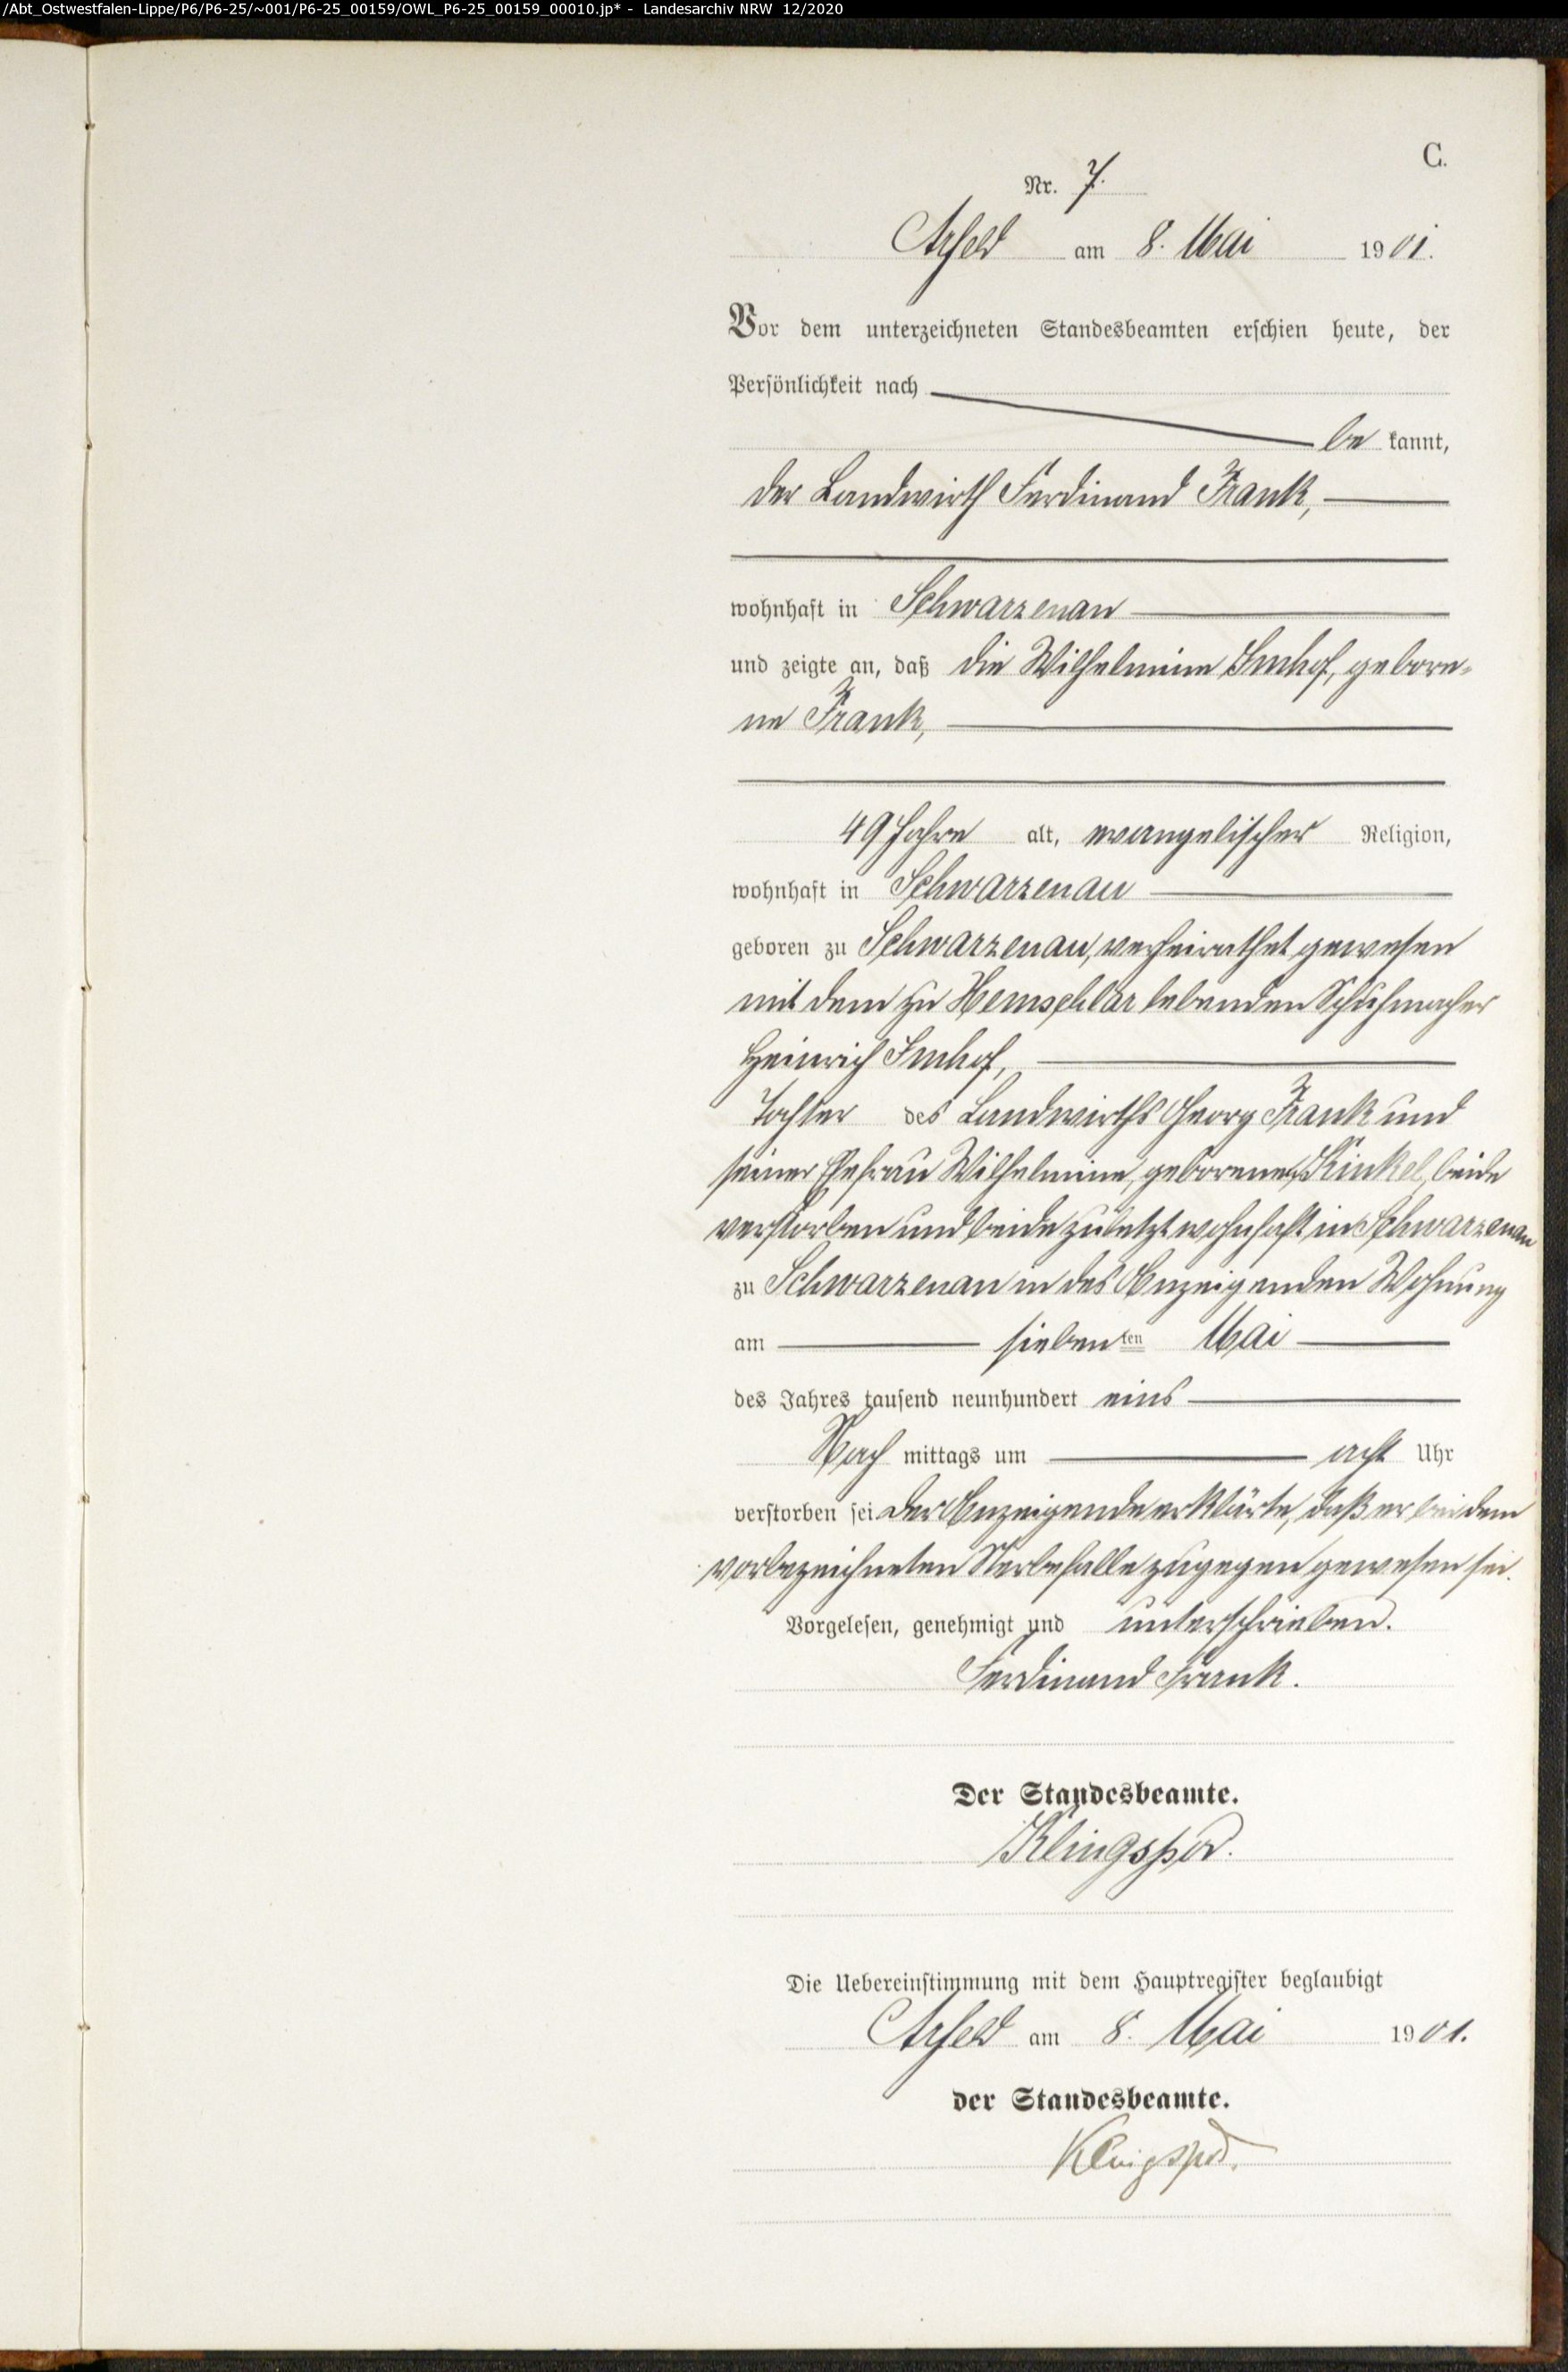 /Abt_Ostwestfalen-Lippe/P6/P6-25/~001/P6-25_00159/OWL_P6-25_00159_00010.jp* - Landesarchiv NRW 12/2020
C.
Nr. 7.
Arfeld am 8. Mai 1901.
Vor dem unterzeichneten Standesbeamten erschien heute, der
Persönlichkeit nach
be kannt,
der Landwirth Ferdinand Frank,
wohnhaft in Schwarzenau
und zeigte an, daß die Wilhelmine Imhof, gebore-
ne Frank,
49 Jahre alt, evangelischer Religion,
wohnhaft in Schwarzenau
geboren zu Schwarzenau, verheirathet gewesen
mit dem zu Hemschlar lebenden Schuhmacher
Heinrich Imhof,
Tochter des Landwirths Georg Frank und
seiner Ehefrau Wilhelmine, geborenen Kinkel, beide
verstorben und beide zuletzt wohnhaft in Schwarzenau
zu Schwarzenau in des Anzeigenden Wohnung
am siebenten Mai
des Jahres tausend neunhundert eins
Nach mittags um acht Uhr
verstorben sei. Der Anzeigende erklärte, daß er bei dem
vorbezeichneten Sterbefalle zugegen gewesen sei.
Vorgelesen, genehmigt und unterschrieben.
Ferdinand Frank.
Der Standesbeamte.
Klingspor.
Die Uebereinstimmung mit dem Hauptregister beglaubigt
Arfeld am 8. Mai 1901.
der Standesbeamte.
Klingspor.